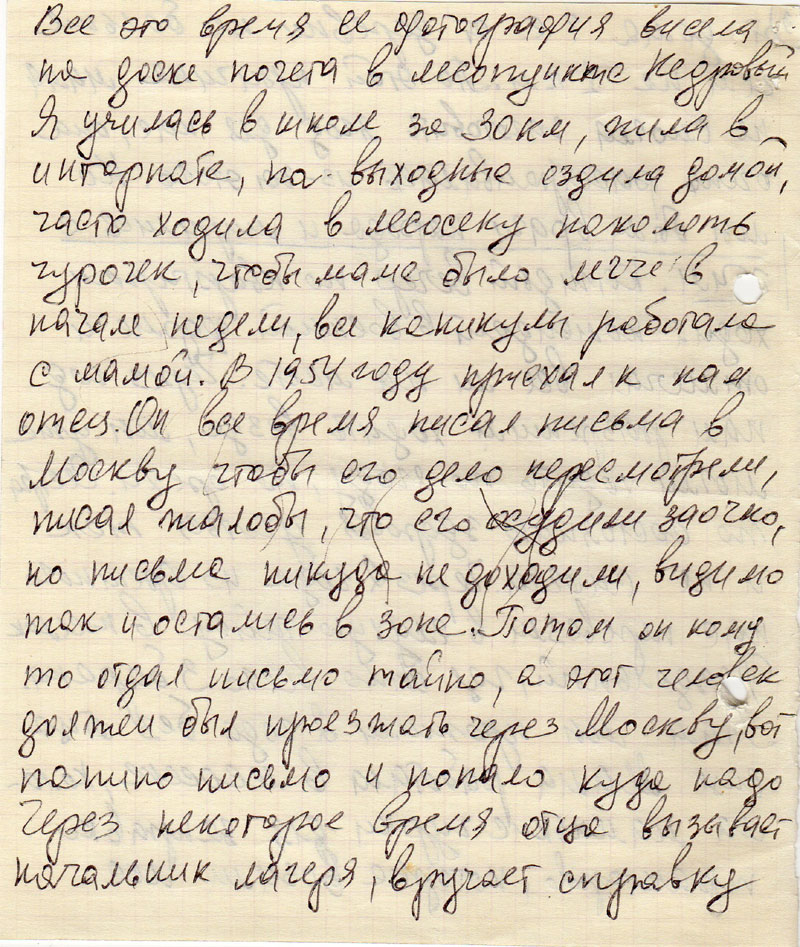 Все это время ее фотография висела
на доске почета в лесопункте Кедровый
Я училась в школе за 30 км, жила в
интернате, на выходные ездила домой,
часто ходила в лесосеку наколоть
чурочек, чтобы маме было легче в
начале недели, все каникулы работала
с мамой. В 1954 году приехал к нам
отец. Он все время писал письма в
Москву чтобы его дело пересмотрели,
писал жалобы, что его осудили заочно,
но письма никуда не доходили, видимо
так и остались в зоне. Потом он кому
то отдал письмо тайно, а этот человек
должен был проезжать через Москву, вот
папино письмо и попало куда надо
Через некоторое время отца вызывает
начальник лагеря, вручает справку